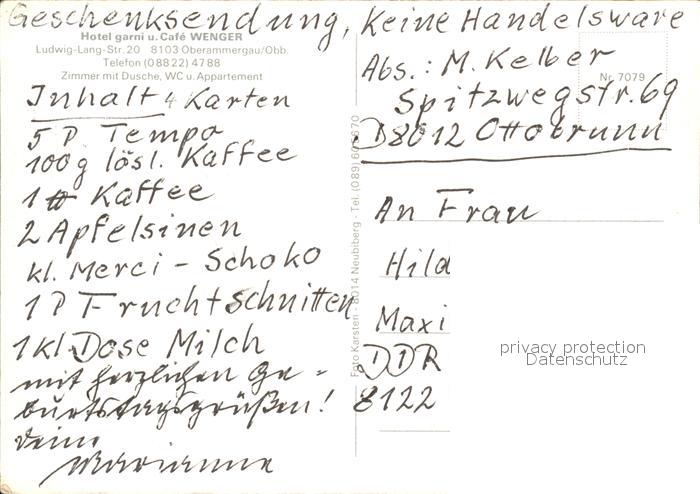 Geschenksendung, Keine Handelsware
Hotel garni u. Café WENGER
Ludwig-Lang-Str. 20 8103 Oberammergau/Obb.
Telefon (08822) 4788
Zimmer mit Dusche, WC u. Appartement
Inhalt 4 Karten
5 P Tempo
100g lösl. Kaffee
1 ℔ Kaffee
2 Apfelsinen
kl. Merci - Schoko
1 P Fruchtschnitten
1 kl Dose Milch
mit herzlichen Ge-
burtstagsgrüßen!
Deine
Marianne
Foto Karsten · 8014 Neubiberg · Tel. (089)
Abs.: M. Kelber
Nr. 7079
Spitzwegstr. 69
D8012 Ottobrunn
An Frau
Hild
Maxi
DDR
8122
privacy protection
Datenschutz